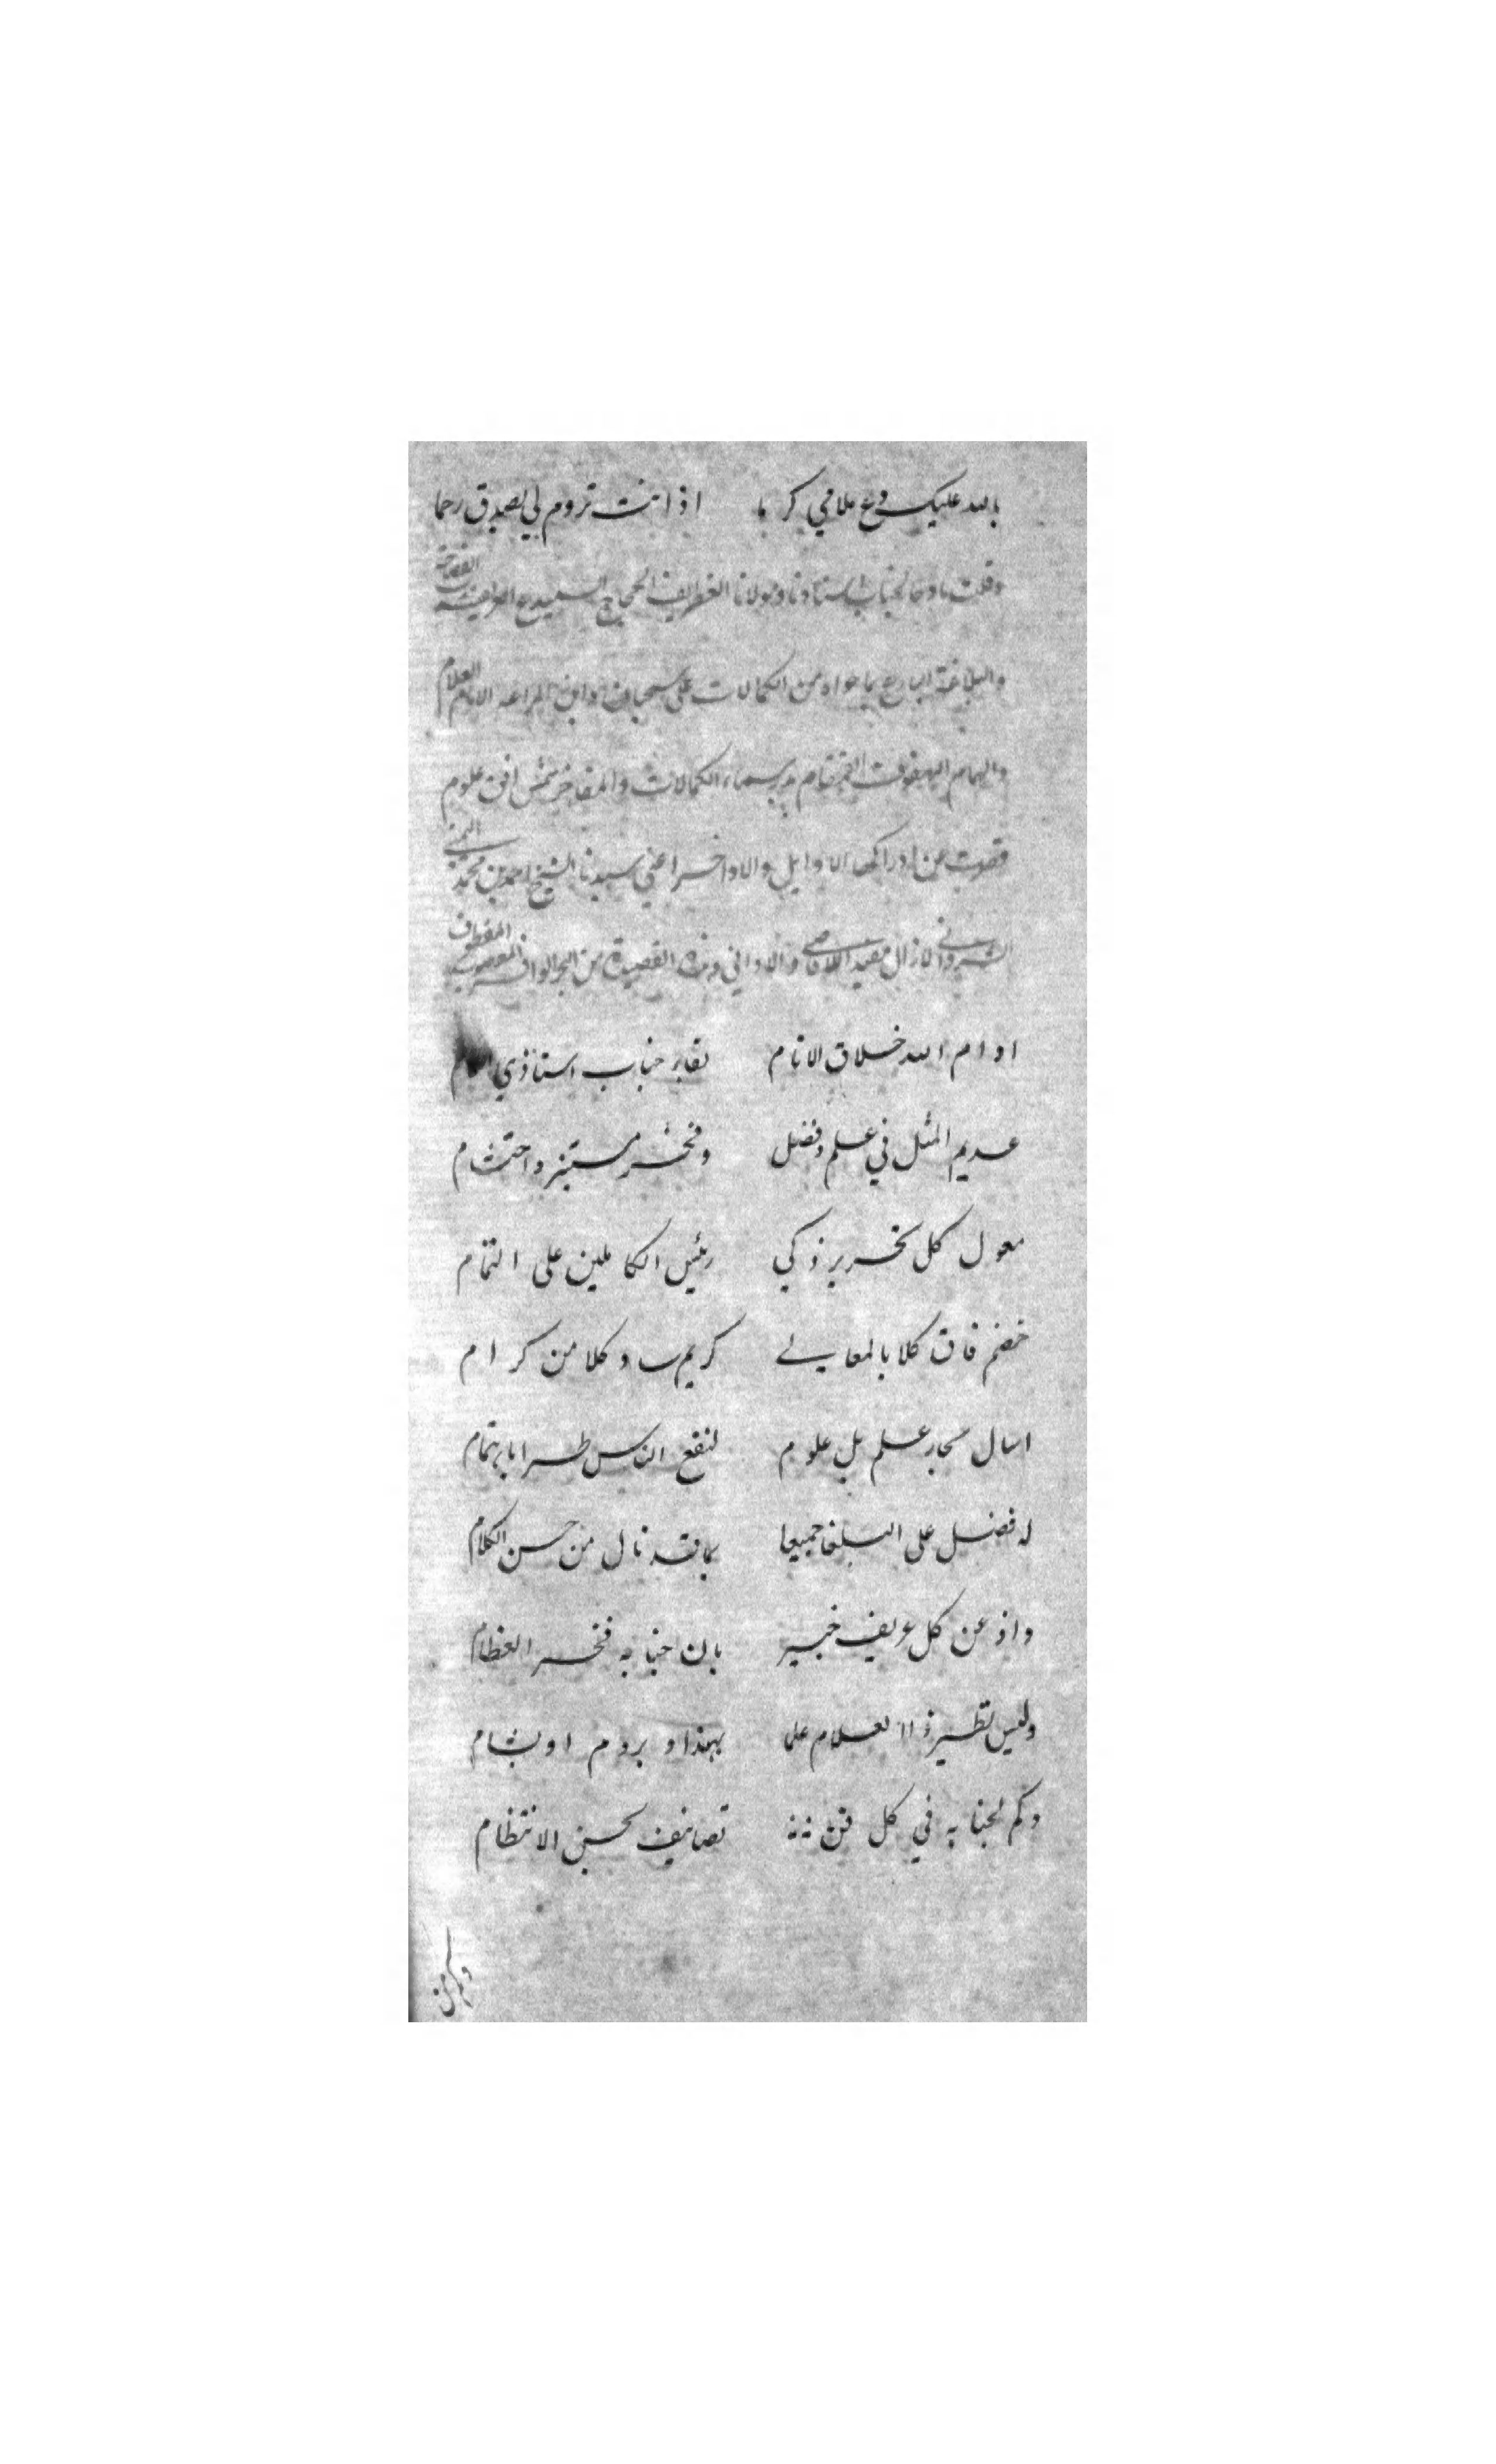 بالله عليك دع علامي كربا اذا انت تروم لي بصدق رحما
وقلت مادحا لجناب استاذنا ومولانا الغطريف الحجاج السميدع الفصاحة
والبلاغة البارع بما حواه من الكمالات على سحبان وابن المراغه الامام العلام
والهمام القمقام بدر سماء الكمالات والمفاخر شمس افق علوم
قصرت عن ادراكها الاوايل والاواخر اعني سيدنا الشيخ احمد بن محمد اليمني
الشرواني لازال مفيد الاقاصي والاداني وهذه القصيدة من البحر الوافر المعصوب المقطوف
ادام الله خلاق الانام بقاء جناب استاذي
عديم المثل في علم وفضل وفخر مستنير واحتشام
معول كل نحرير ذكي رئيس الكاملين على التمام
خضم فاق كلا بالمعالي كريم ساد كلا من كرام
اسال بحار علم بل علوم لنفع الناس طرا باهتمام
له فضل على البلغا جميعا بما قد نال من حسن الكلام
واذعن كل عريف خبير بان جنابه فخر العظام
وليس نظير ذا العلام علما بهند او بروم او بشام
وكم لجنابه في كل فن تصانيف بحسن الانتظام
وكم من